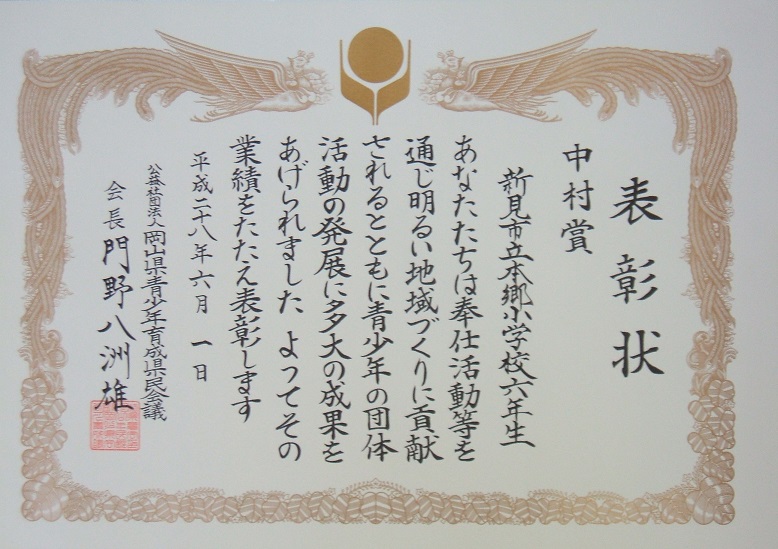 表彰状
中村賞
新見市立本郷小学校六年生
あなたたちは奉仕活動等を
通じ明るい地域づくりに貢献
されるとともに青少年の団体
活動の発展に多大の成果を
あげられました よってその
業績をたたえ表彰します
平成二十八年六月 一日
公益社団法人岡山県青少年育成県民会議
会長 門野八洲雄